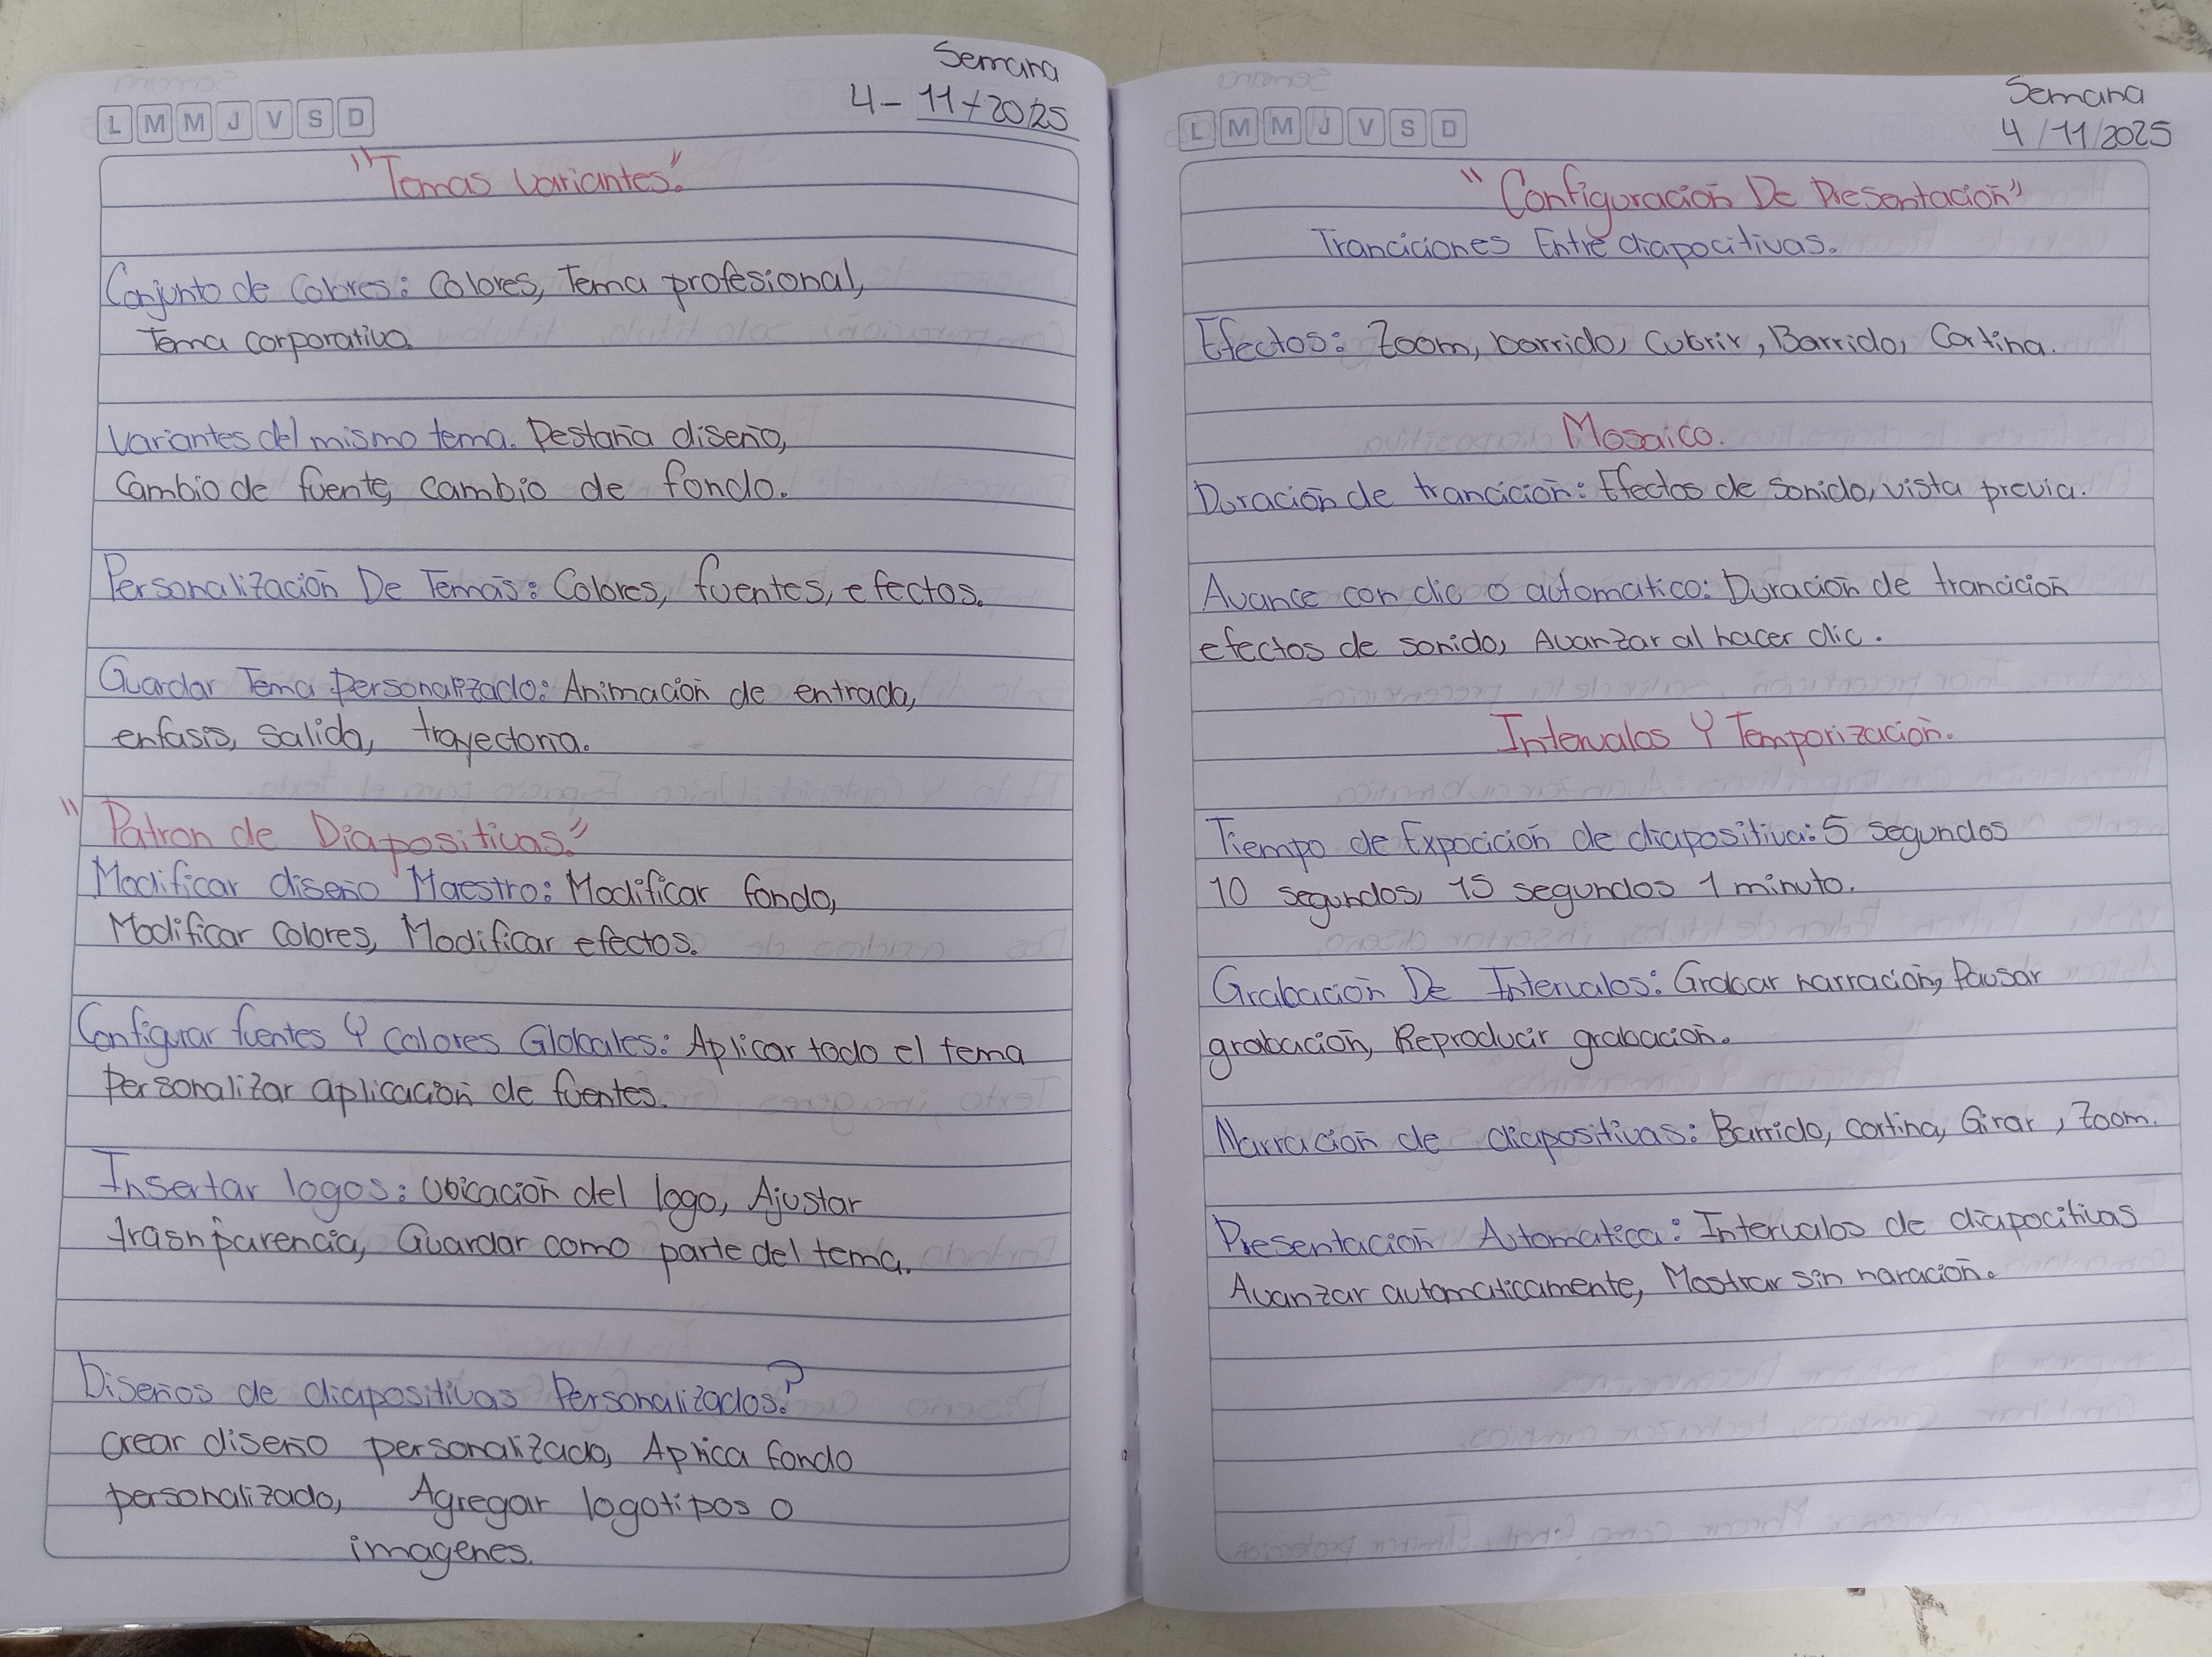 Semana
4-11-2025
L M M J V S D
"Temas variantes."
Conjunto de Colores: Colores, Tema profesional,
Tema corporativo.
Variantes del mismo tema. Pestaña diseño,
Cambio de fuente, cambio de fondo.
Personalización De Temas: Colores, fuentes, efectos.
Guardar Tema Personalizado: Animación de entrada,
enfasis, salida, trayectoria.
"Patron de Diapositivas."
Modificar diseño Maestro: Modificar fondo,
Modificar colores, Modificar efectos.
Configurar fuentes Y colores Globales: Aplicar todo el tema
Personalizar aplicación de fuentes.
Insertar logos: Ubicación del logo, Ajustar
trasnparencia, Guardar como parte del tema.
Diseños de diapositivas Personalizados?
crear diseño personalizado, Aplica fondo
personalizado, Agregar logotipos o
imagenes.
Semana
4/11/2025
L M M J V S D
"Configuración De Presentación"
Tranciciones Entre diapocitivas.
Efectos: Zoom, barrido, Cubrir, Barrido, Cortina.
Mosaico.
Duración de trancición: Efectos de sonido, vista previa.
Avance con clic o automatico: Duración de trancición
efectos de sonido, Avanzar al hacer clic.
Intervalos Y Temporización.
Tiempo de Expocición de diapositiva: 5 segundos
10 segundos, 15 segundos 1 minuto.
Grabación De Intervalos: Grabar narración, Pausar
grabación, Reproducir grabación.
Narración de diapositivas: Barrido, cortina, Girar, Zoom.
Presentación Automatica: Intervalos de diapocitivas
Avanzar automaticamente, Mostrar sin naración.